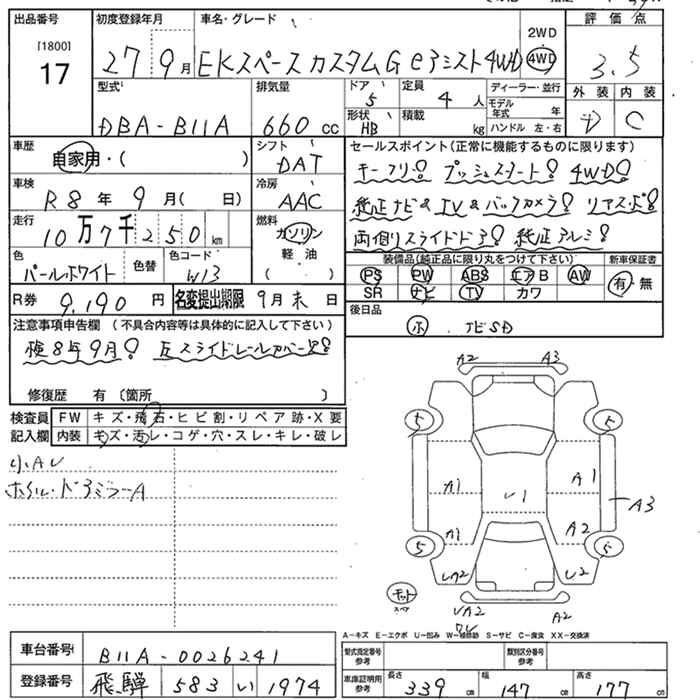 出品番号 初度登録年月 車名・グレード 2WD 評価点
[1800]
17 27年 9月 EKスペースカスタムG eアシスト4WD 4WD 3.5
型式 排気量 ドア 5 定員 4人 ディーラー・並行 外装 内装
DBA-B11A 660cc 形状 HB 積載 kg モデル年式 年 ハンドル 左・右 D C
車歴 シフト セールスポイント(正常に機能するものに限ります)
自家用・( ) DAT キーフリー! プッシュスタート! 4WD!
車検 冷房 純正ナビ&TV&バックカメラ! リアスポ!
R8年 9月( 日) AAC 両側スライドドア! 純正アルミ!
走行 燃料
10万7千250km ガソリン 軽油 ( )
色 色替 色コード 装備品(純正品に限り丸をつけて下さい) 新車保証書
パールホワイト W13 PS PW ABS エアB AW 有・無
SR ナビ TV カワ
R券 9,190円 名変提出期限 9月末日 後日品
注意事項申告欄 (不具合内容等は具体的に記入して下さい) ホ ナビSD
検8年9月! 左スライドレールカバー欠!
修復歴 有 (箇所 )
検査員 FW キズ・飛石・ヒビ割・リペア跡・X要
記入欄 内装 キズ・汚レ・コゲ・穴・スレ・キレ・破レ
小AU
ホイル・ドアミラーA
A2 A3
5 5
A1 U1 A1 A3
A1 A2
5 5
UA2 U2
モット スペア
UA2 A2
A-キズ E-エクボ U-凹み W-補修跡 S-サビ C-腐食 XX-交換済
車台番号 B11A-0026241 型式指定番号 参考 類別区分番号 参考
登録番号 飛騨 583 い 1974 車庫証明用 参考 長さ 339cm 幅 147cm 高さ 177cm